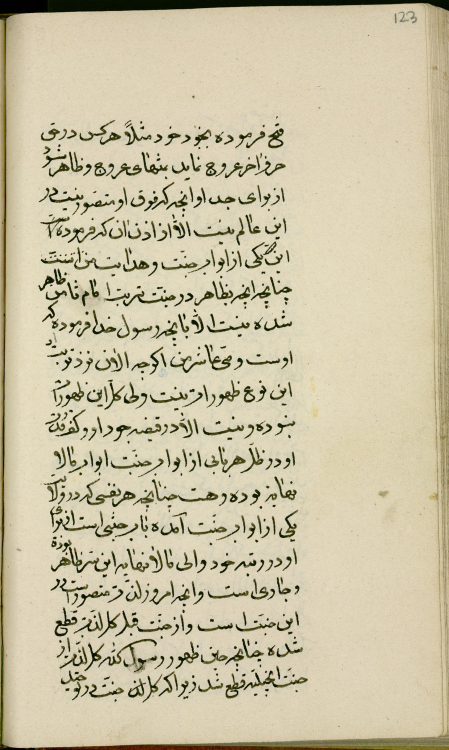 123
فتح فرموده بجود خود مثلاً هر کس در حق
حرف اخر عروج نماید بمنتهای عروج و ظاهر شود
از برای جد او انچه که فوق او متصور نیست در
این عالم نیست الا از اذن ان که فرموده است
این یکی از ابواب جنت و هدایت من است
چنانچه انچه بظاهر در جنت تربت امام ثامن ظاهر
شده نیست الا بانچه رسول خدا فرموده که
اوست وصی عاشر من اگر چه الان نزد تربت او
این نوع ظهور او نیست ولی کل این ظهورات
بنوده و نیست الا در قبضه جود او و کف قدرت
او در ظل هر بابی از ابواب جنت ابواب مالا
نهایه بوده و هست چنانچه هر نفسی که در ولایت
یکی از ابواب جنت امده باب جنتی است از برای
او در رتبه خود و الی مالا نهایه این سر ظاهر بوده
و جاری است و انچه امروز لذت متصور است در
این جنت است و از جنت قبل کل لذت قطع
شده چنانچه حین ظهور رسول الله کل لذت از
جنت انجیلیه قطع شد زیرا که کل لذت جنت در توحید